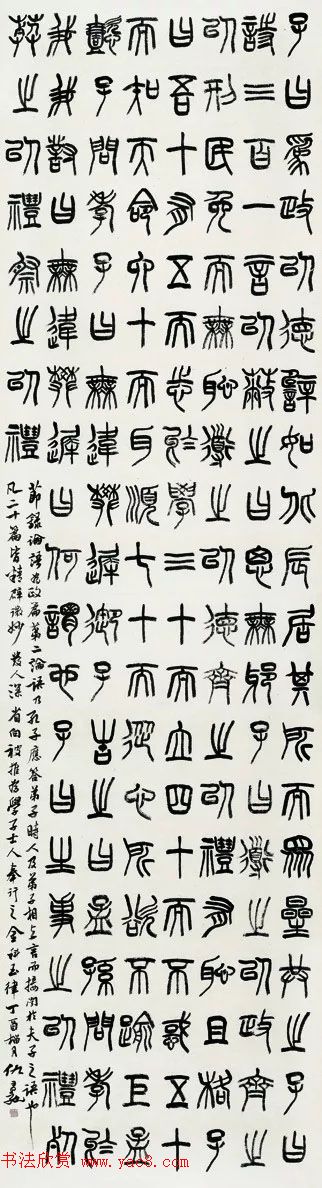 子曰為政以德譬如北辰居其所而眾星共之子曰
詩三百一言以蔽之曰思無邪子曰道之以政齊之
以刑民免而無恥道之以德齊之以禮有恥且格子
曰吾十有五而志於學三十而立四十而不惑五十
而知天命六十而耳順七十而從心所欲不踰矩孟
懿子問孝子曰無違樊遲御子告之曰孟孫問孝於
我我對曰無違樊遲曰何謂也子曰生事之以禮死
葬之以禮祭之以禮
節錄論語為政篇第二論語乃孔子應答弟子時人及弟子相與言而接聞於夫子之語也
凡二十篇皆精辟微妙發人深省向被推為學子士人奉行之金科玉律丁酉榴月
书法欣赏 www.yac8.com